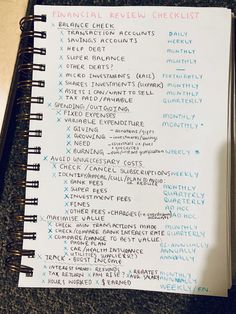 FINANCIAL REVIEW CHECKLIST
x BALANCE CHECK
x TRANSACTION ACCOUNTS DAILY
x SAVINGS ACCOUNTS WEEKLY
x HELP DEBT MONTHLY
x SUPER BALANCE MONTHLY
x OTHER DEBTS?
x MICRO INVESTMENTS (RAIZ) FORTNIGHTLY
x SHARES INVESTMENTS MONTHLY
x ASSETS I OWN/WANT TO SELL MONTHLY
x TAX PAID/PAYABLE QUARTERLY
x SPENDING/OUTGOING
x FIXED EXPENSES MONTHLY
x VARIABLE EXPENDITURE MONTHLY
x GIVING
x GROWING
x NEED
x BURNING WEEKLY
x AVOID UNNECESSARY COSTS
x CHECK/CANCEL SUBSCRIPTIONS WEEKLY
x BANK FEES MONTHLY
x SUPER FEES QUARTERLY
x INVESTMENT FEES QUARTERLY
x FINES AD HOC
x OTHER FEES + CHARGES AD HOC
x MAXIMISE VALUE
x CHECK TRANSACTIONS MADE MONTHLY
x CHECK/COMPARE BANK INTEREST RATE QUARTERLY
x COMPARE/CHANGE TO BEST VALUE:
x PHONE PLAN
x CAR/HEALTH INSURANCE ANNUALLY
x UTILITIES SUPPLIER? ANNUALLY
x TRACK + BOOST INCOME
x INTEREST EARNED MONTHLY
x TAX RETURN
x HOURS WORKED x $ EARNED WEEKLY/FN